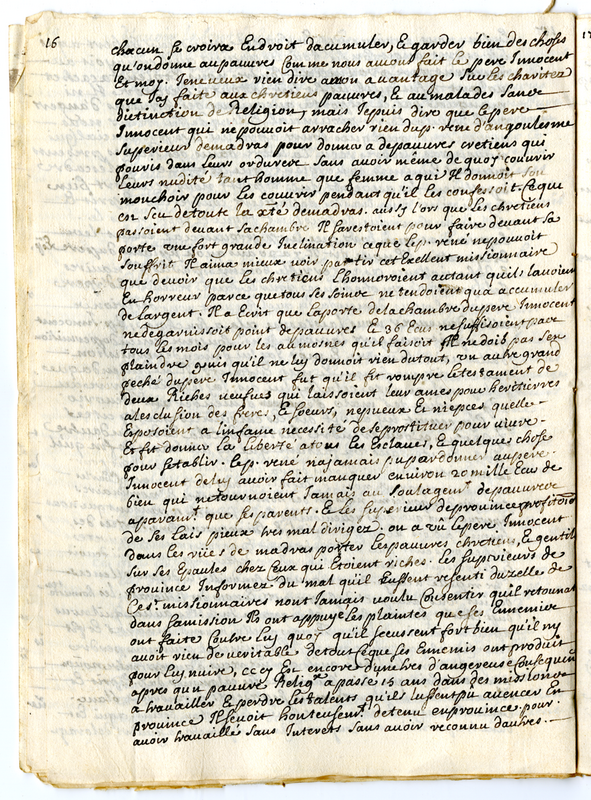 16
chacun se croira Endroit dacumuler, & garder bien des choses
qu'on donne aupauvres Comme nous auons fait le pere Innocent
Et moy. Jene ueux rien dire a mon auantage sur les charitez
que J'ay faite aux chretiens pauvres, & au malades sans
distinction de Religion, mais Jepuis dire que lepere
Innocent qui nepouvoit arracher rien dup. rene d'angoulesme
superieur demadras pour donner a depauvres cretiens qui
pouris dans leurs ordures sans auoir même de quoy couurir
leurs nudité tant homme que femme a qui Il donnoit son
mouchoir pour les couurir pendant qu'il les confessoit. Ce que
est sçu detoute la xte demadras. aussy l'ors que les chretiens
passoient deuant sachambre Il sarestoient pour faire deuant sa
porte une fort grande Inclination ce que lep. rené nepouvoit
souffrit Il aima mieux uoir partir cet Exellent missionnaire
que deuoir que les chretiens L'honnoroient autant qu'ils lauoient
En horreur parce que tous ses soins ne tendoient qu'a accumuler
de Largent. Il a Ecrit que Laporte dela chambre dupere Innocent
nedegarnissoit point depauvres & 36 Ecus nesuffisoient par
tous les mois pour les aumosnes qu'il faisoit Il nedoit pas sen
plaindre puis qu'il ne luy donnoit rien dutout, un autre grand
peché dupere Innocent fut qu'il fit rompre letestament de
deux Riches ueufues qui laissoient leur ames pour heritierres
a lesclusion des freres, & soeurs, nepueux Et niepces quelle
Exposoient a linfame necessité de se prostituer pour uiure
Et fit donner la Liberté atous les Esclaues, & quelque chose
pour setablir. Lep. rené najamais pu pardonner aupere
Innocent deluy auoir fait manquer enuiron 20 mille Ecus de
bien qui netournoient Jamais au soulagemt depauvres
aparaumt que separents. & les superieur de prouince profitoient
de ses Lais pieux tres mal dirigez. on a vû lepere Innocent
dans les rües de madras porter les pauvres chretiens, & gentils
sur ses Epaules chez ceux qui Etoient riches. les superieurs de
prouince Informez du mal qu'il Eussent resenti du zelle de
Ces missionnaires nont Jamais uoulu Consentir quil retournat
dans samission Ils ont appuyé les plaintes que ses Ennemis
ont faite Contre Luy quoy qu'il sceussent fort bien qu'il ny
auoit rien de ueritable detout ce que ses Ennemis ont produit
pour Luy nuire, cecy Est encore dune tres dangereuse Consequence
apres qu'un pauure Religx a passé 15 ans dans des missions
a trauailler & perdre les talents qu'ils Eussent pu auencer En
prouince Il seuoit honteusemt detenu en prouince pour
auoir trauaillé sans Interets sans auoir reconnu dautres